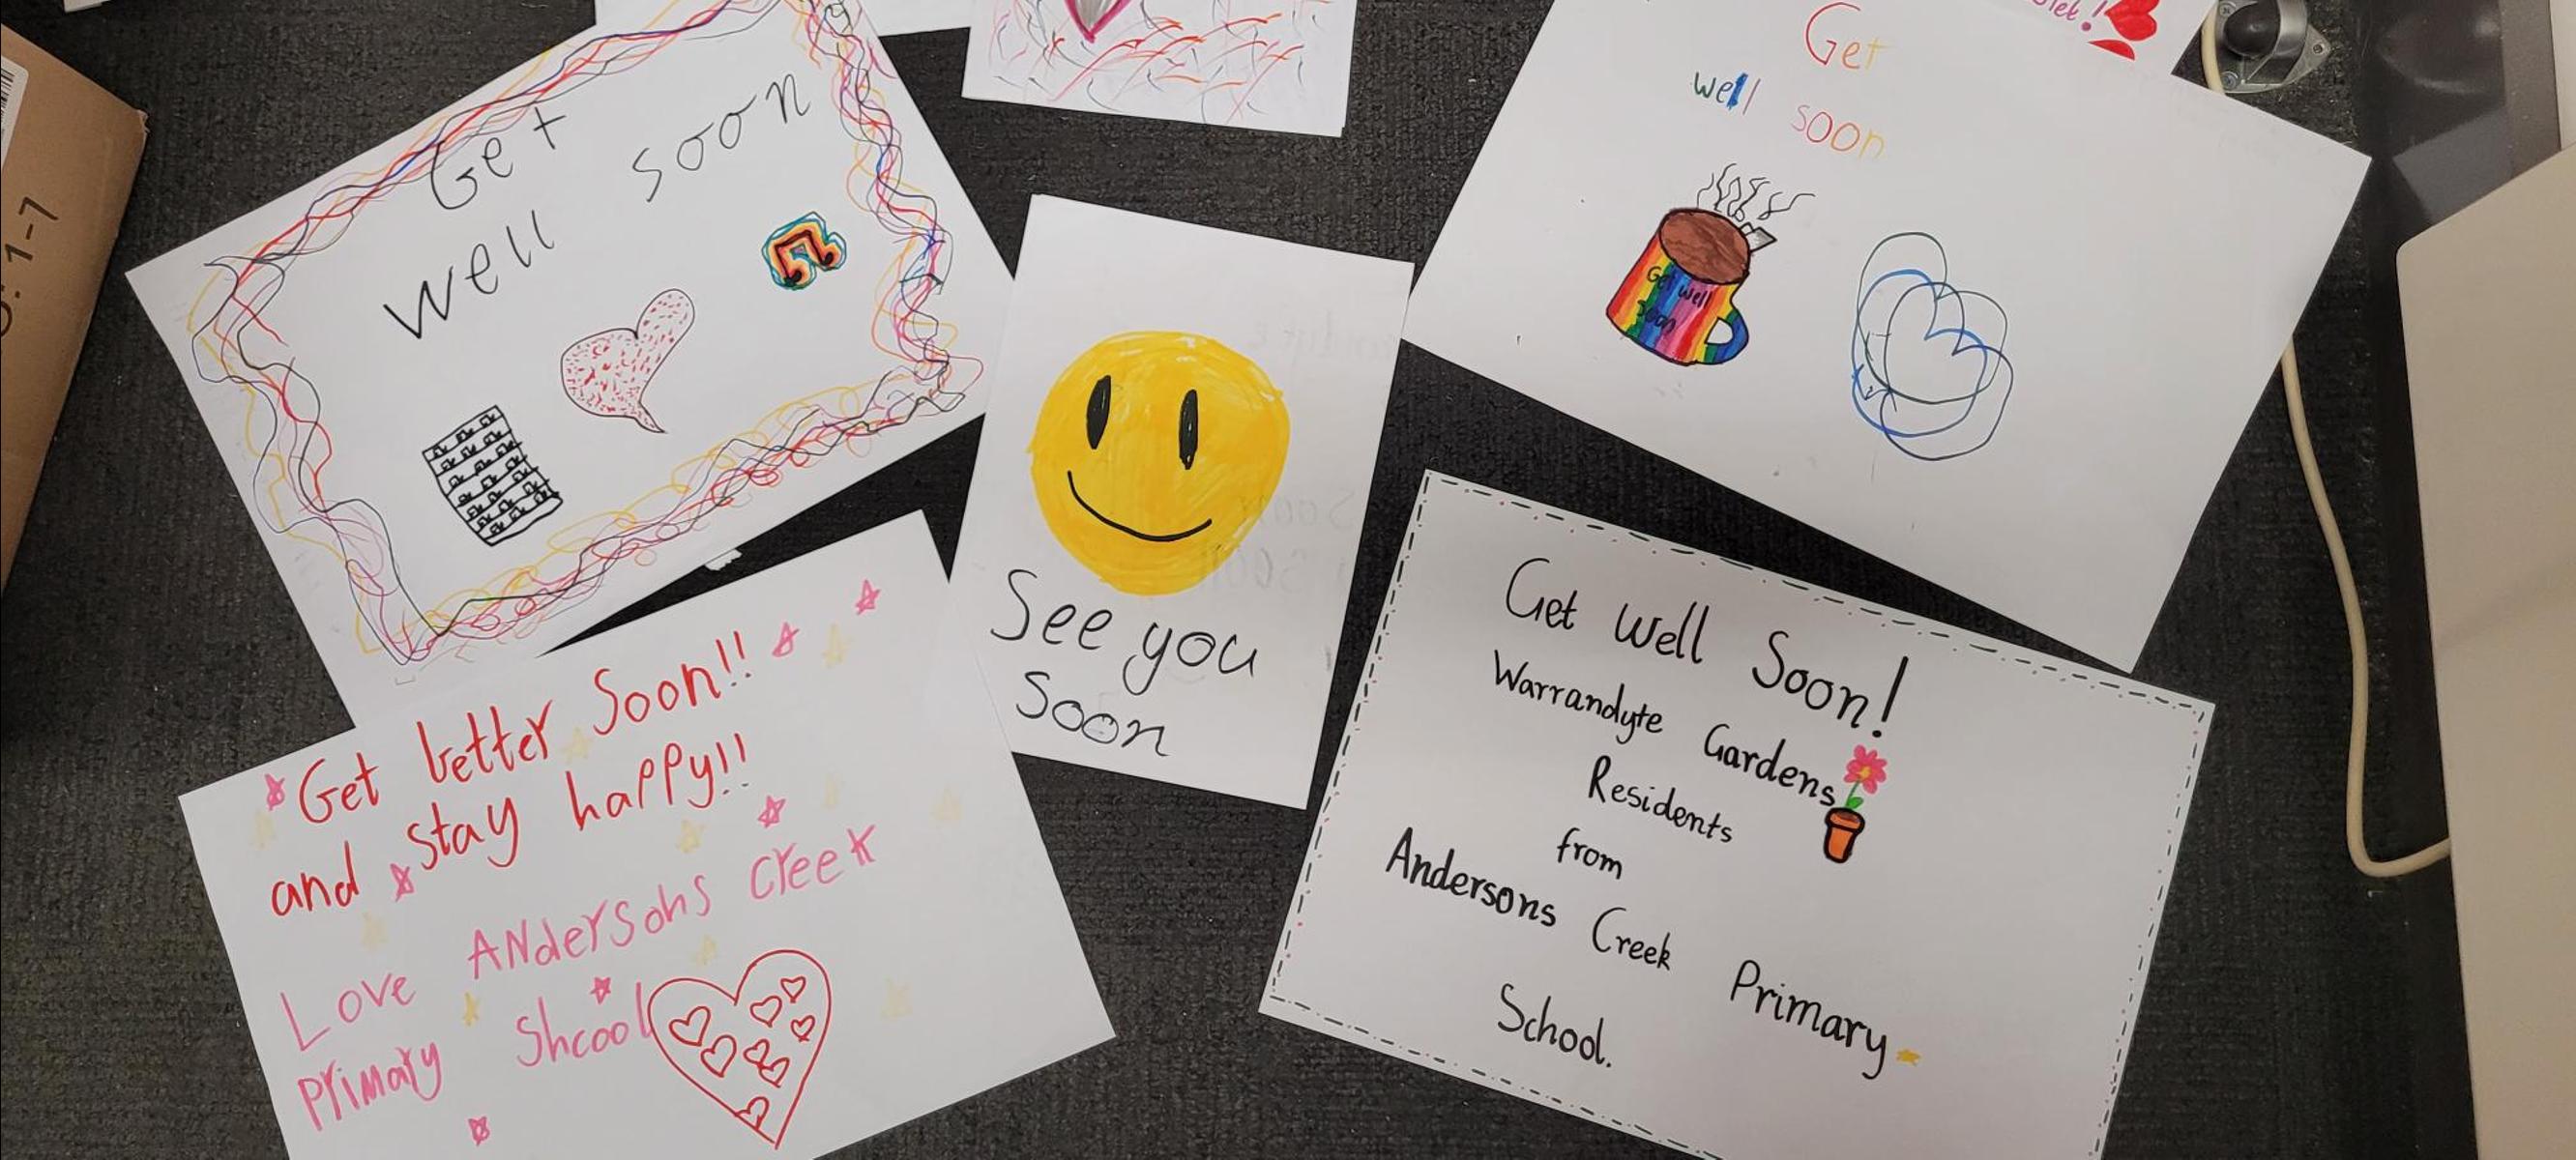 Get
well soon
Get
well soon
Get well
Soon
See you
Soon
Get better Soon!!
and stay happy!!
Love ANdersons creek
Primary Shcool
Get Well Soon!
Warrandyte Gardens
Residents
from
Andersons Creek Primary
School.